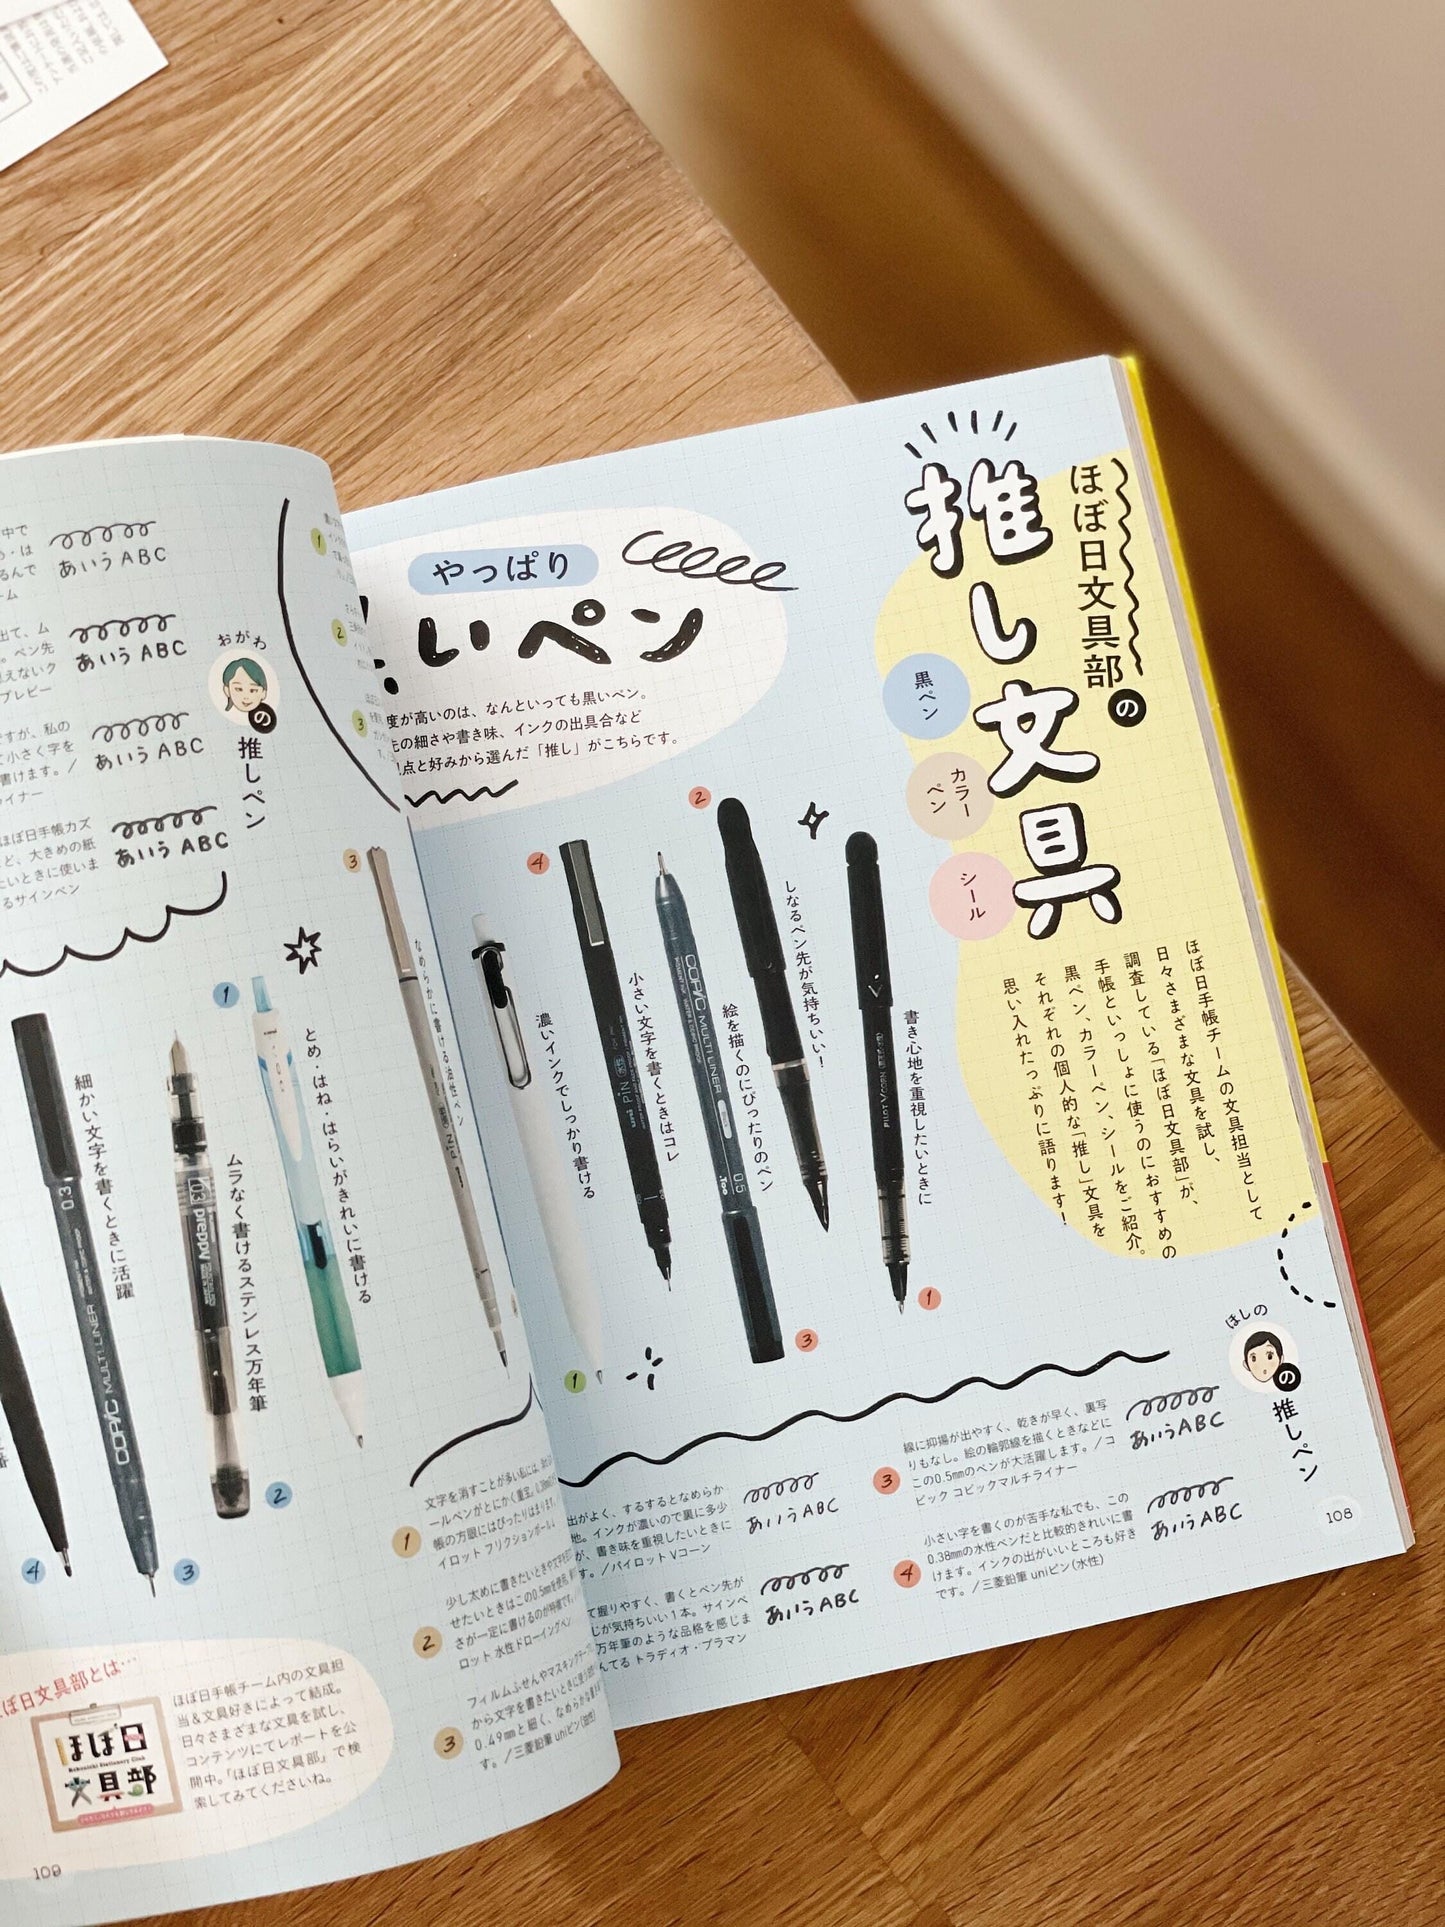 ほぼ日文具部の
推し文具
黒ペン
カラーペン
シール
ほぼ日手帳チームの文具担当として
日々さまざまな文具を試し、
調査している「ほぼ日文具部」が、
手帳といっしょに使うのにおすすめの
黒ペン、カラーペン、シールをご紹介。
それぞれの個人的な「推し」文具を
思い入れたっぷりに語ります！
やっぱり
いペン
度が高いのは、なんといっても黒いペン。
の細さや書き味、インクの出具合など
点と好みから選んだ「推し」がこちらです。
ほしの
の推しペン
書き心地を重視したいときに
1
しなるペン先が気持ちいい！
2
絵を描くのにぴったりのペン
3
小さい文字を書くときはコレ
4
濃いインクでしっかり書ける
1
なめらかに書ける油性ペン
3
PILOT V CORN
COPIC MULTI LINER
0.5
Too
PIN
出がよく、するするとなめらか
地。インクが濃いので裏に多少
が、書き味を重視したいときに
す。／パイロット Vコーン
あいうABC
て握りやすく、書くとペン先が
じが気持ちいい1本。サインペ
万年筆のような品格を感じま
んてる トラディオ・プラマン
あいうABC
3
線に抑揚が出やすく、乾きが早く、裏写
りもなし。絵の輪郭線を描くときなどに
この0.5mmのペンが大活躍します。／コ
ピック コピックマルチライナー
あいうABC
4
小さい字を書くのが苦手な私でも、この
0.38mmの水性ペンだと比較的きれいに書
けます。インクの出がいいところも好き
です。／三菱鉛筆 uniピン(水性)
あいうABC
108
1
2
3
おがわ
の推しペン
中で
は
るんで
ーム
あいうABC
出て、ム
。ペン先
見えないク
プレピー
あいうABC
ですが、私の
て小さく字を
書けます。／
ライナー
あいうABC
ほぼ日手帳カズ
ど、大きめの紙
たいときに使いま
るサインペン
あいうABC
1
とめ・はね・はらいがきれいに書ける
2
ムラなく書けるステンレス万年筆
03 preppy
3
細かい文字を書くときに活躍
0.3
COPIC MULTI LINER
4
1
文字を消すことが多い私には、
ールペンがとにかく重宝。
帳の方眼にはぴったりはまります。
イロット フリクションボール
2
少し太めに書きたいときや文字を
せたいときはこの0.5mmを使用。
さが一定に書けるのが特徴です。
ロット 水性ドローイングペン
3
フィルムふせんやマスキングテープ
から文字を書きたいときに使う
0.49mmと細く、なめらかな書
す。／三菱鉛筆 uniピン(油性)
ぼ日文具部とは…
ほぼ日手帳チーム内の文具担
当＆文具好きによって結成。
日々さまざまな文具を試し、
コンテンツにてレポートを公
開中。「ほぼ日文具部」で検
索してみてくださいね。
ほぼ日
Hobonichi Stationery Club
文具部
109